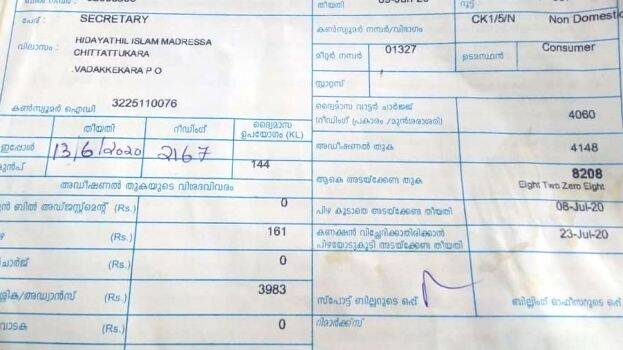 തീയതി
റൂട്ട്
പേര് : SECRETARY
വിലാസം : HIDAYATHIL ISLAM MADRESSA
CHITTATTUKARA
.VADAKKEKARA P O
കൺസ്യൂമർ ഐഡി 3225110076
തീയതി
റീഡിംഗ്
ദ്വൈമാസ
ഉപയോഗം (KL)
ഇപ്പോൾ 13/6/2020 2167
മുൻപ് 144
അഡീഷണൽ തുകയുടെ വിശദവിവരം
ൻ ബിൽ അഡ്ജസ്റ്റ്മെന്റ് (Rs.) 0
ഴ (Rs.) 161
ചാർജ് (Rs.) 0
ശ്ശിക/അഡ്വാൻസ് (Rs.) 3983
വാടക (Rs.) 0
കൺസ്യൂമർ നമ്പർ/വിഭാഗം CK1/5/N Non Domestic
മീറ്റർ നമ്പർ 01327 ഉടമസ്ഥൻ Consumer
സ്റ്റാറ്റസ്
ദ്വൈമാസ വാട്ടർ ചാർജ്ജ്
(റീഡിംഗ് പ്രകാരം /മുൻശരാശരി) 4060
അഡീഷണൽ തുക 4148
ആകെ അടയ്ക്കേണ്ട തുക 8208
Eight Two Zero Eight
പിഴ കൂടാതെ അടയ്ക്കേണ്ട തീയതി 08-Jul-20
കണക്ഷൻ വിച്ഛേദിക്കാതിരിക്കാൻ
പിഴയോടുകൂടി അടയ്ക്കേണ്ട തീയതി 23-Jul-20
സ്പോട്ട് ബില്ലറുടെ ഒപ്പ്
ബില്ലിംഗ് ഓഫീസറുടെ ഒപ്പ്
റിമാർക്ക്സ്